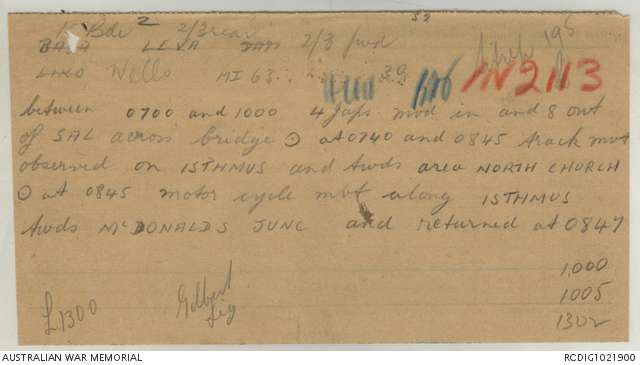 Bde 2 2/3 rear 52
2/3 fwd
Wells MI 63 39 IN 2113
between 0700 and 1000 4 Japs mvd in and 8 out
of SAL across bridge ⊙ at 0740 and 0845 track mvt
observed on ISTHMUS and twds area NORTH CHURCH
⊙ at 0845 motor cycle mvt along ISTHMUS
twds McDONALDS JUNC and returned at 0847
1000
1005
L1300 Gilbert Sig 1302
AUSTRALIAN WAR MEMORIAL RCDIG1021900